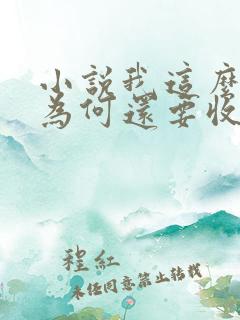 小說我這麼
為何還要收
程紅
未經同意禁止轉載